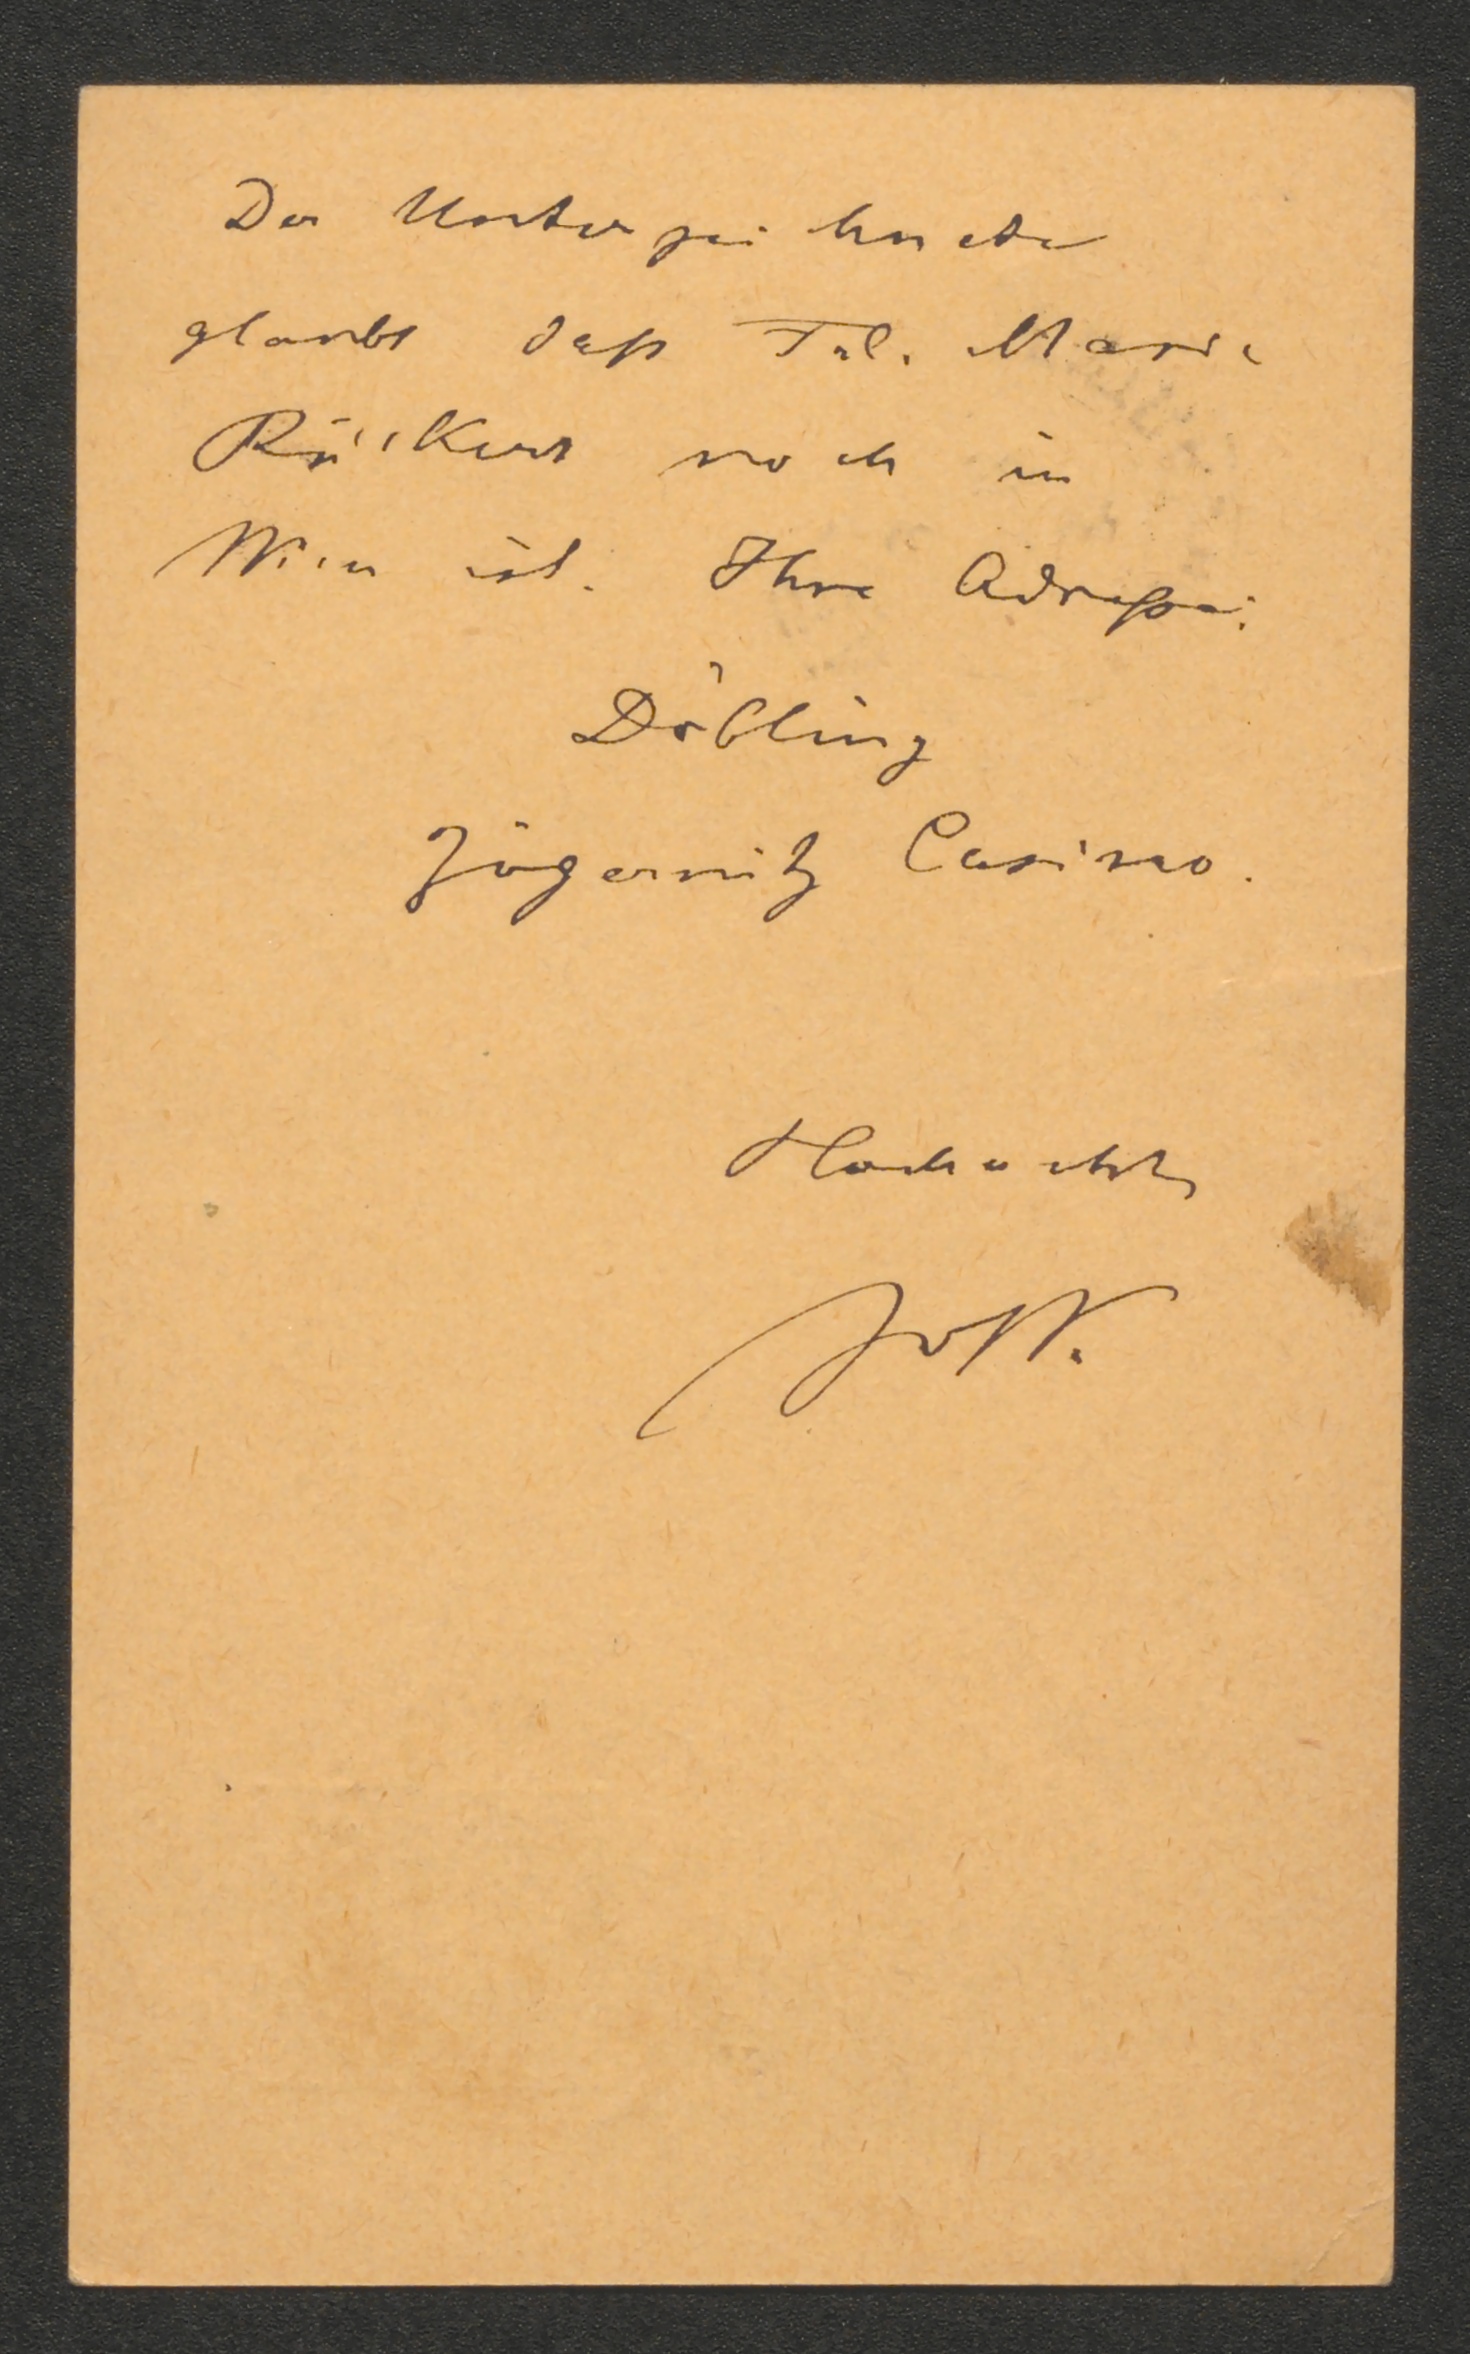 Der Unterzeichnete
glaubt daß Frl. Marie
Rückert noch in
Wien ist. Ihre Adresse:
Döbling
Zögernitz Casino.
Hochacht
JvW.